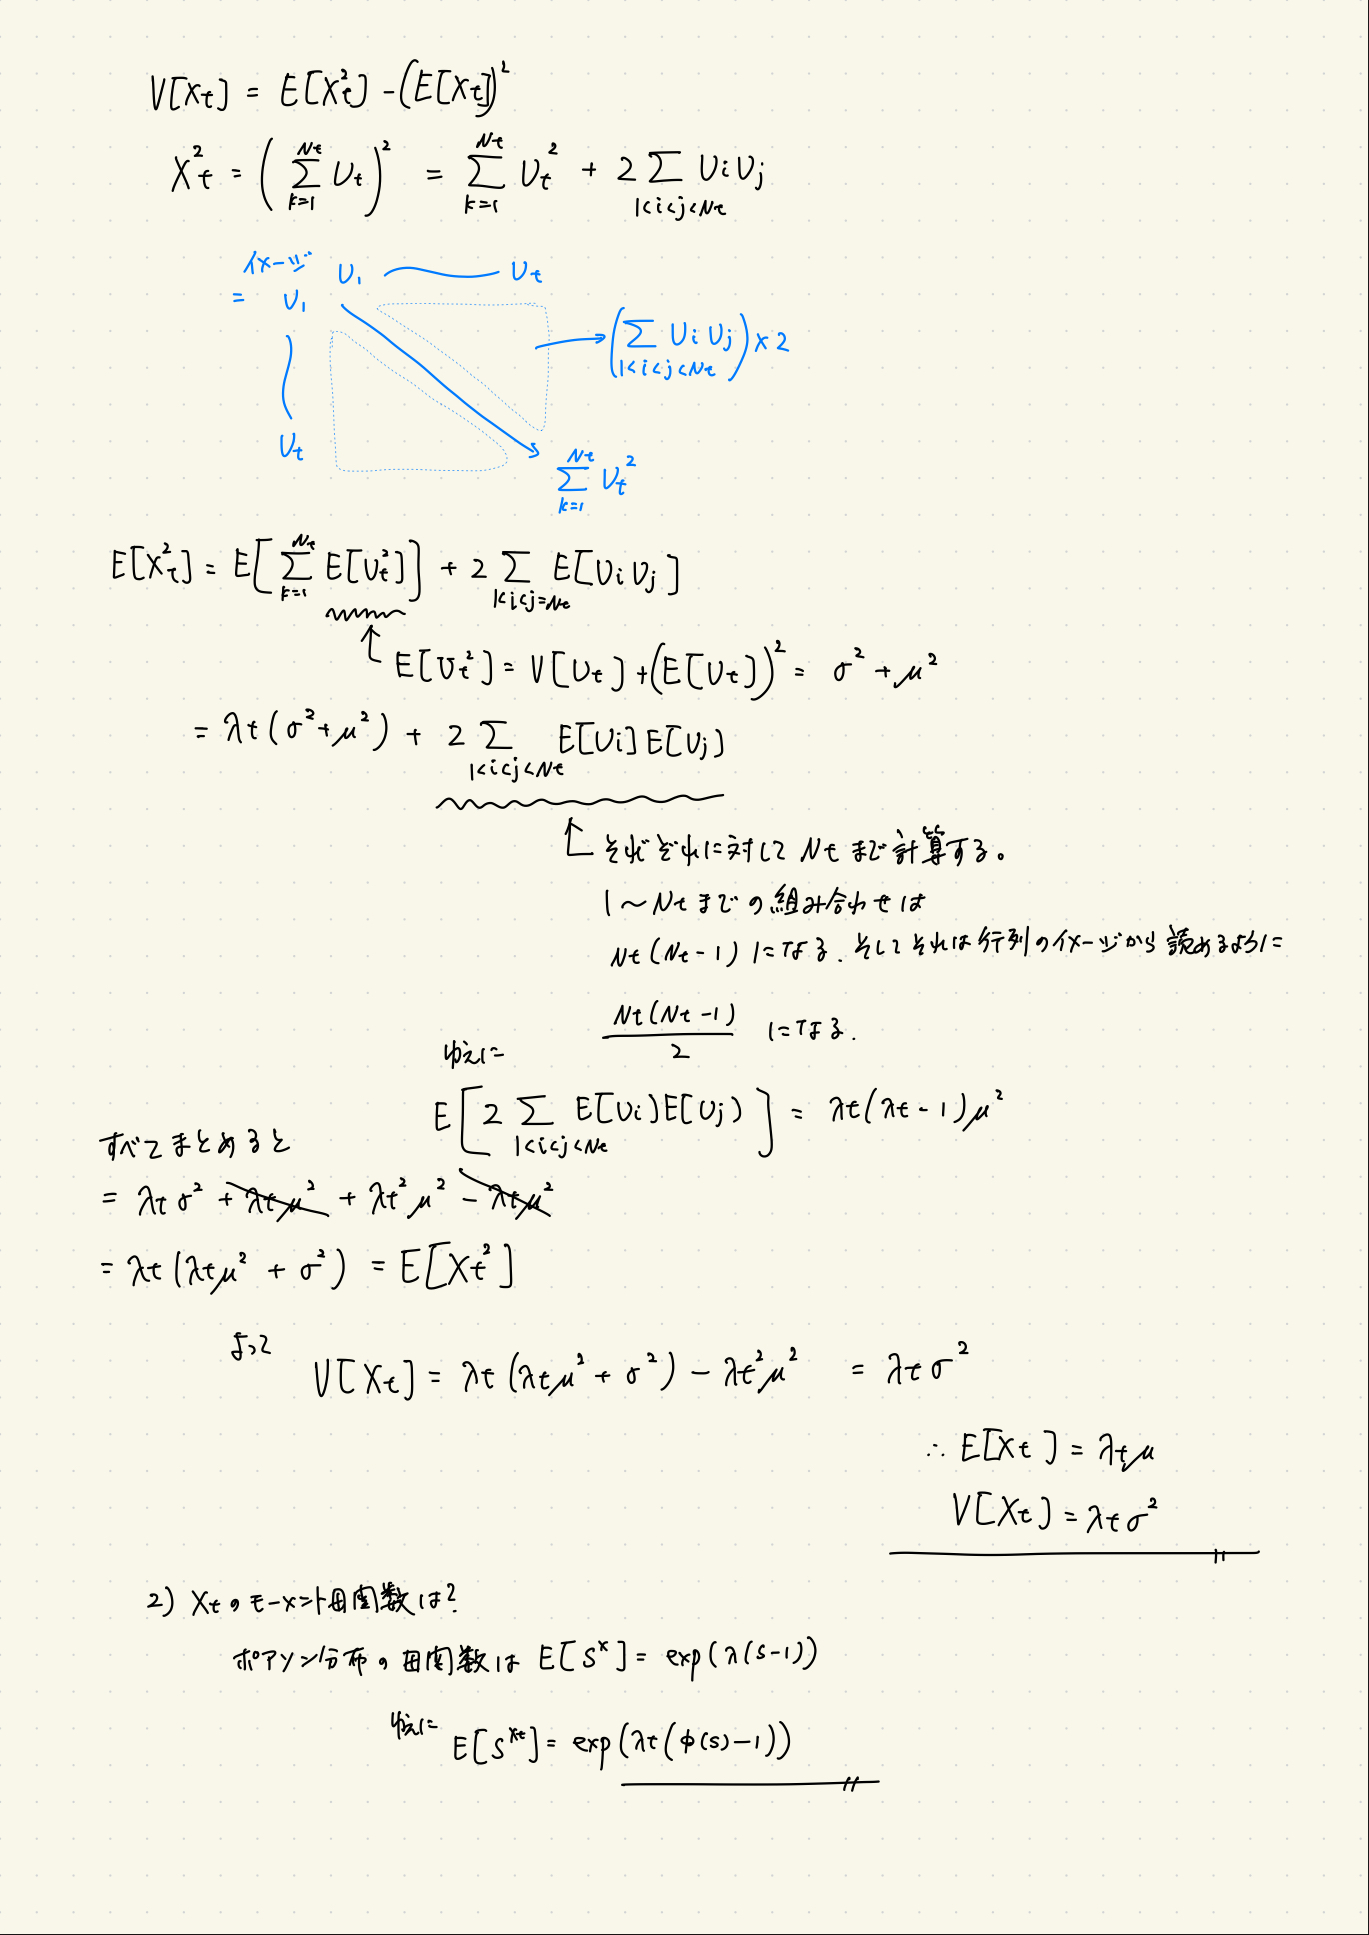 V[Xt] = E[Xt²] - (E[Xt])²
Xt² = (∑_{k=1}^{Nt} Ut)² = ∑_{k=1}^{Nt} Ut² + 2∑_{1<i<j<Nt} UiUj
イメージ U1 Ut
= U1
(∑_{1<i<j<Nt} UiUj)×2
Ut
∑_{k=1}^{Nt} Ut²
E[Xt²] = E[∑_{k=1}^{Nt} E[Ut²]] + 2∑_{1<i<j=Nt} E[UiUj]
E[Ut²] = V[Ut] + (E[Ut])² = σ² + μ²
= λt(σ²+μ²) + 2∑_{1<i<j<Nt} E[Ui]E[Uj]
それぞれに対して Nt まで計算する。
1〜Ntまでの組み合わせは
Nt(Nt-1) になる. そしてそれは行列のイメージから読めるように
Nt(Nt-1)/2 になる.
ゆえに
E[2∑_{1<i<j<Nt} E[Ui]E[Uj]] = λt(λt-1)μ²
すべてまとめると
= λtσ² + λtμ² + λt²μ² - λtμ²
= λt(λtμ² + σ²) = E[Xt²]
よって
V[Xt] = λt(λtμ² + σ²) - λt²μ² = λtσ²
∴ E[Xt] = λtμ
V[Xt] = λtσ²
2) Xtのモーメント母関数は?
ポアソン分布の母関数は E[S^x] = exp(λ(s-1))
ゆえに
E[S^{Xt}] = exp(λt(φ(s)-1))